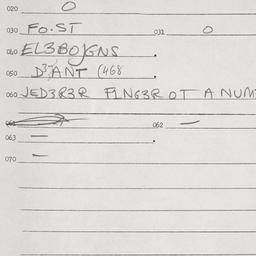 020 O
030 FO.ST 031 O
040 EL3BOJGNS .
050 D3ANT (468
060 JED3R3R FING3R OT A NUM
061 062 —
063 — .
070 —